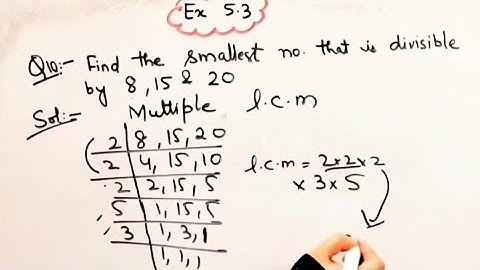 Ex 5.3
Q10:- Find the smallest no. that is divisible
by 8, 15 & 20
Sol:- Multiple l.c.m
2 | 8, 15, 20
2 | 4, 15, 10
2 | 2, 15, 5
5 | 1, 15, 5
3 | 1, 3, 1
1, 1, 1
l.c.m = 2×2×2
× 3 × 5